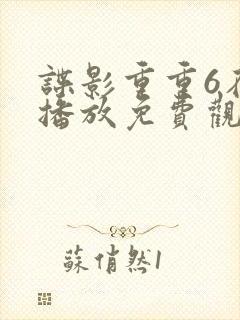 諜影重重6在
播放免費觀
蘇俏然1